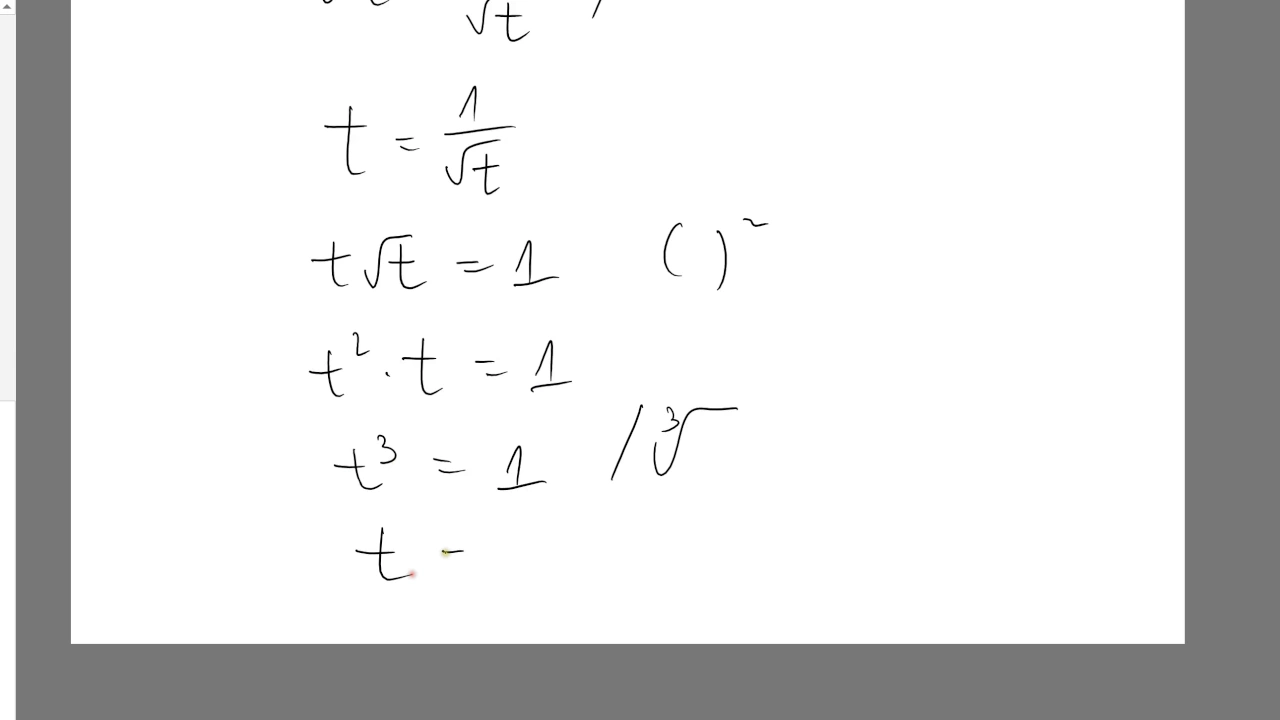 √t
t = 1/√t
t√t = 1 ( )²
t² · t = 1
t³ = 1 / ³√
t -